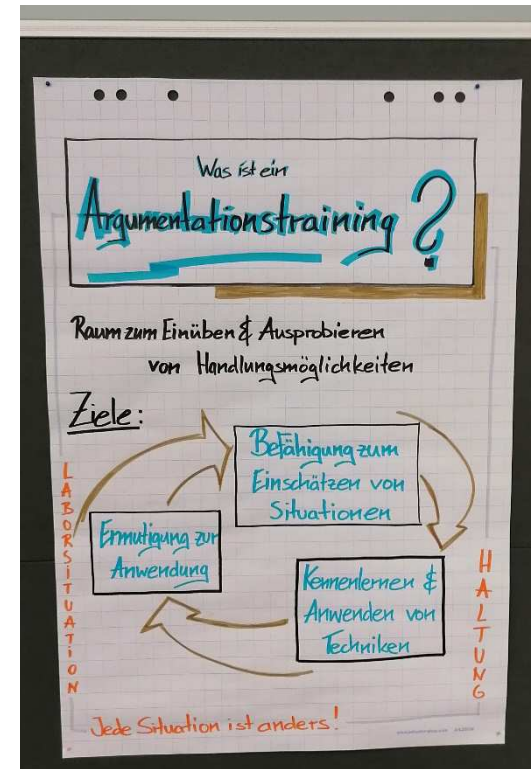 Was ist ein
Argumentationstraining?
Raum zum Einüben & Ausprobieren
von Handlungsmöglichkeiten
Ziele:
Befähigung zum
Einschätzen von
Situationen
Ermutigung zur
Anwendung
Kennenlernen &
Anwenden von
Techniken
LABORSITUATION
HALTUNG
Jede Situation ist anders!